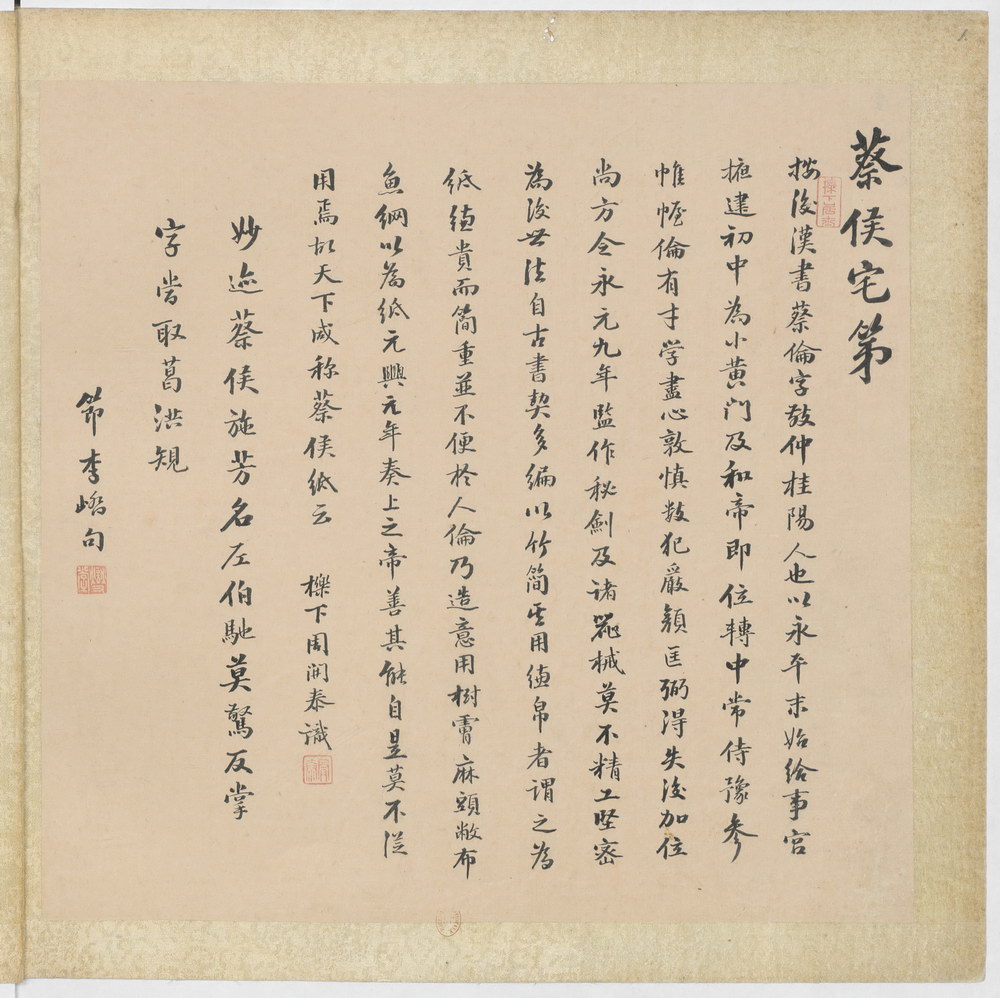 蔡侯宅第
按後漢書蔡倫字敬仲桂陽人也以永平末始給事宮
掖建初中為小黃門及和帝即位轉中常侍豫參
帷幄倫有才学盡心敦慎數犯嚴顏匡弼得失後加位
尚方令永元九年監作秘劍及诸器械莫不精工堅密
為後世法自古書契多編以竹简其用縑帛者谓之為
紙縑貴而简重並不便於人倫乃造意用樹膚麻頭敝布
魚網以為紙元興元年奏上之帝善其能自是莫不從
用焉故天下咸称蔡侯紙云 櫟下周開泰識
妙迹蔡侯施芳名左伯馳莫驚反掌
字當取葛洪規
節李嶠句